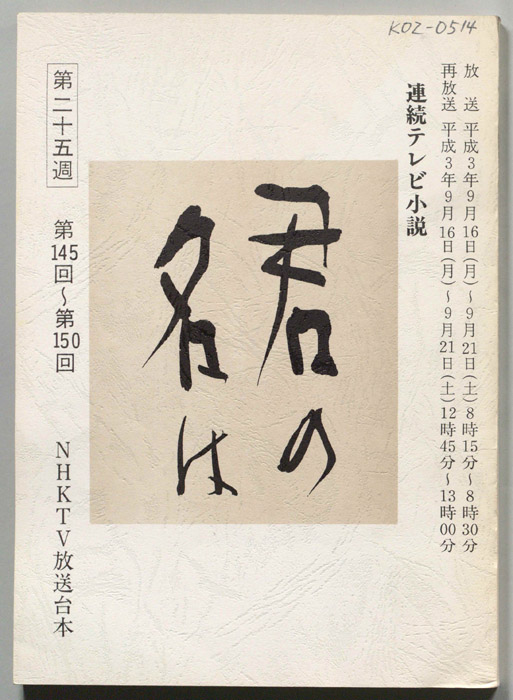 K02-0514
放送 平成3年9月16日(月)～9月21日(土)8時15分～8時30分
再放送 平成3年9月16日(月)～9月21日(土)12時45分～13時00分
連続テレビ小説
君の
名は
第二十五週
第145回～第150回
NHKTV放送台本